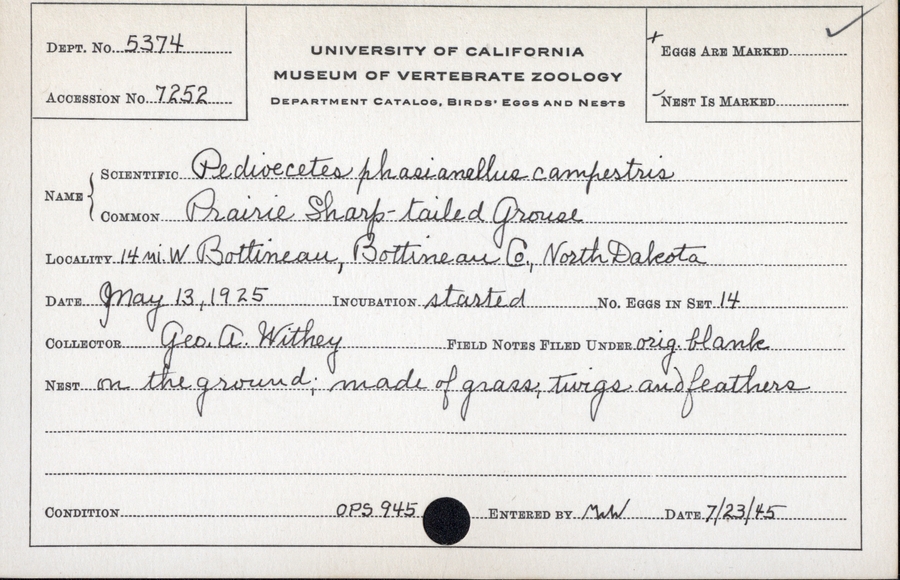 DEPT. NO. 5374
ACCESSION NO. 7252
UNIVERSITY OF CALIFORNIA
MUSEUM OF VERTEBRATE ZOOLOGY
DEPARTMENT CATALOG, BIRDS' EGGS AND NESTS
+ EGGS ARE MARKED ✓
- NEST IS MARKED
NAME { SCIENTIFIC Pedioecetes phasianellus campestris
COMMON Prairie Sharp-tailed Grouse
LOCALITY 14 mi. W Bottineau, Bottineau Co., North Dakota
DATE May 13, 1925 INCUBATION started NO. EGGS IN SET 14
COLLECTOR Geo. A. Withey FIELD NOTES FILED UNDER orig. blank
NEST on the ground; made of grass, twigs and feathers
CONDITION OPS 945 ENTERED BY DATE 7/23/45